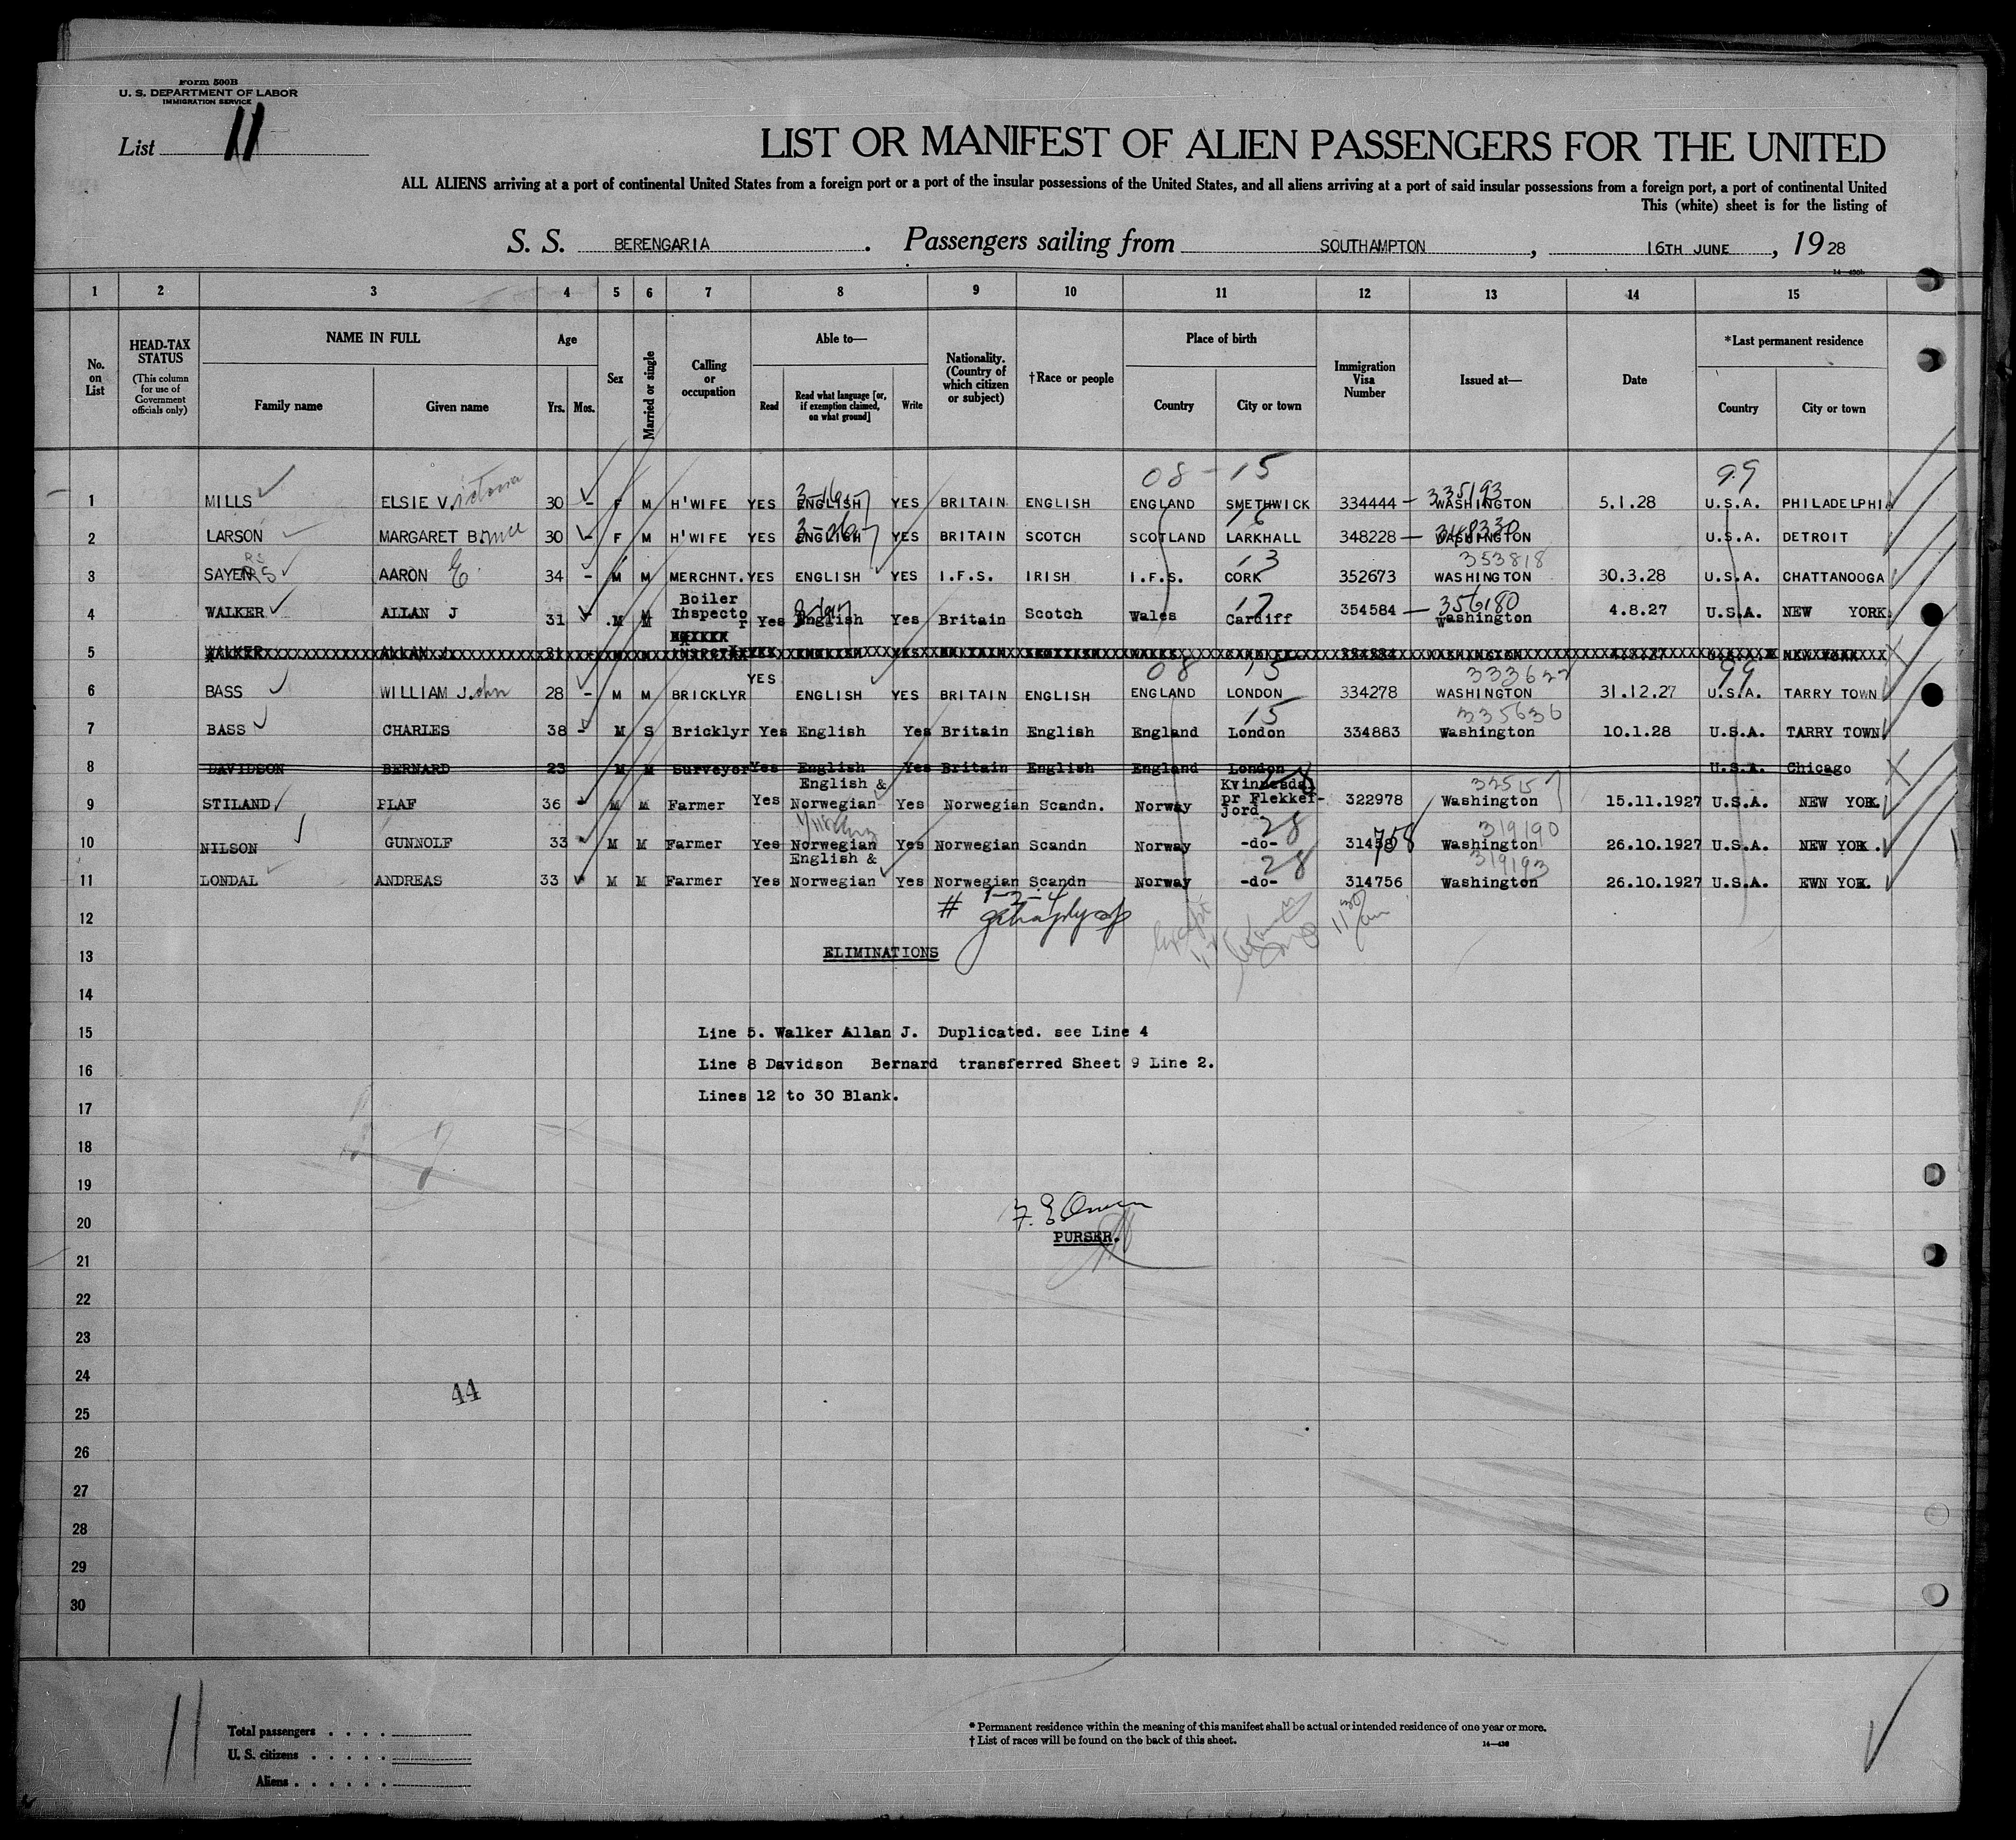 Form 500B
U. S. DEPARTMENT OF LABOR
IMMIGRATION SERVICE
List 11
LIST OR MANIFEST OF ALIEN PASSENGERS FOR THE UNITED
ALL ALIENS arriving at a port of continental United States from a foreign port or a port of the insular possessions of the United States, and all aliens arriving at a port of said insular possessions from a foreign port, a port of continental United
This (white) sheet is for the listing of
S. S. BERENGARIA. Passengers sailing from SOUTHAMPTON, 16TH JUNE, 1928
1 2 3 4 5 6 7 8 9 10 11 12 13 14 15
No. on List
HEAD-TAX STATUS (This column for use of Government officials only)
NAME IN FULL
Family name Given name
Age
Yrs. Mos.
Sex
Married or single
Calling or occupation
Able to—
Read Read what language [or, if exemption claimed, on what ground] Write
Nationality. (Country of which citizen or subject)
†Race or people
Place of birth
Country City or town
Immigration Visa Number
Issued at—
Date
*Last permanent residence
Country City or town
08 - 15 99
3-16- 335193
1 MILLS ELSIE Victoria 30 - F M H'WIFE YES ENGLISH YES BRITAIN ENGLISH ENGLAND SMETHWICK 334444 - WASHINGTON 5.1.28 U.S.A. PHILADELPHIA
16 348330
2 LARSON MARGARET Bruce 30 - F M H'WIFE YES ENGLISH YES BRITAIN SCOTCH SCOTLAND LARKHALL 348228 - WASHINGTON U.S.A. DETROIT
RS 13 353818
3 SAYERS AARON E. 34 - M M MERCHNT. YES ENGLISH YES I.F.S. IRISH I.F.S. CORK 352673 WASHINGTON 30.3.28 U.S.A. CHATTANOOGA
17 356180
4 WALKER ALLAN J 31 - M M Boiler Inspector Yes English Yes Britain Scotch Wales Cardiff 354584 - Washington 4.8.27 U.S.A. NEW YORK.
5 WALKER ALLAN J.
08 15 333622 99
6 BASS WILLIAM John 28 - M M BRICKLYR YES ENGLISH YES BRITAIN ENGLISH ENGLAND LONDON 334278 WASHINGTON 31.12.27 U.S.A. TARRY TOWN
15 335636
7 BASS CHARLES 38 - M S Bricklyr Yes English Yes Britain English England London 334883 Washington 10.1.28 U.S.A. TARRY TOWN.
8 DAVIDSON BERNARD 23 M M Surveyor Yes English Yes Britain English England London U.S.A. Chicago
28 32515
9 STILAND PLAF 36 - M M Farmer Yes English & Norwegian Yes Norwegian Scandn. Norway Kvinnesdal pr Flekkefjord 322978 Washington 15.11.1927 U.S.A. NEW YORK.
28 319190
10 NILSON GUNNOLF 33 M M Farmer Yes Norwegian Yes Norwegian Scandn Norway -do- 314758 Washington 26.10.1927 U.S.A. NEW YORK.
28 319193
11 LONDAL ANDREAS 33 M M Farmer Yes English & Norwegian Yes Norwegian Scandn Norway -do- 314756 Washington 26.10.1927 U.S.A. EWN YORK.
12 # 1-2-4
13 ELIMINATIONS
14
15 Line 5. Walker Allan J. Duplicated. see Line 4
16 Line 8 Davidson Bernard transferred Sheet 9 Line 2.
17 Lines 12 to 30 Blank.
18
19
20 F. E Owen
PURSER.
21
22
23
24
44
25
26
27
28
29
30
11
Total passengers
U. S. citizens
Aliens
* Permanent residence within the meaning of this manifest shall be actual or intended residence of one year or more.
† List of races will be found on the back of this sheet.